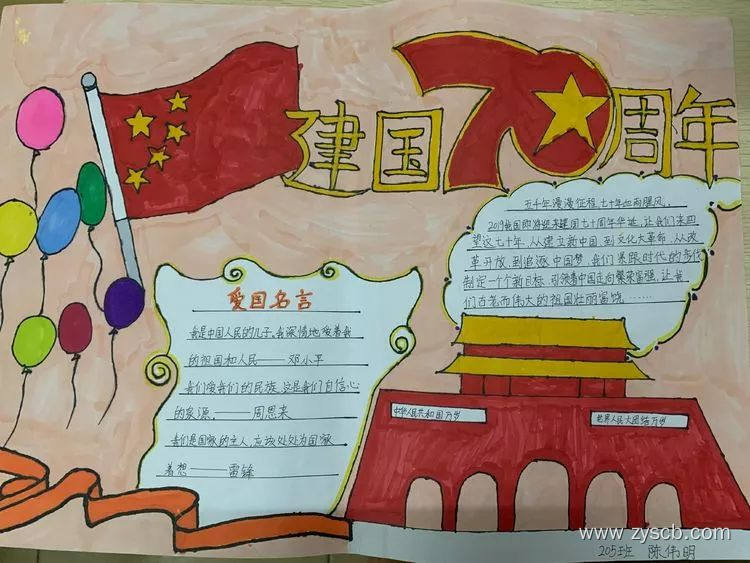 建国70周年
五千年漫漫征程,七十年血雨腥风。
2019我国即将迎来建国七十周年华诞,让我们来回
望这七十年,从建立新中国,到文化大革命,从改
革开放,到追逐中国梦,我们紧跟时代的步伐
制定一个个新目标,引领着中国走向繁荣富强,让我
们古老而伟大的祖国壮丽富饶……
爱国名言
我是中国人民的儿子,我深情地爱着我
的祖国和人民——邓小平
我们爱我们的民族,这是我们自信心
的泉源。——周恩来
我们是国家的主人,应该处处为国家
着想——雷锋
中华人民共和国万岁
世界人民大团结万岁
205班 陈伟明
www.zyscb.com